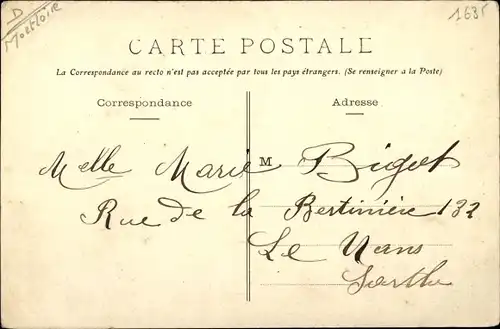 D
Montloire
1635
CARTE POSTALE
La Correspondance au recto n'est pas acceptée par tous les pays étrangers. (Se renseigner a la Poste)
Correspondance
Adresse
Melle Marie M Bigot
Rue de la Bertinière 132
Le Mans
Sarthe